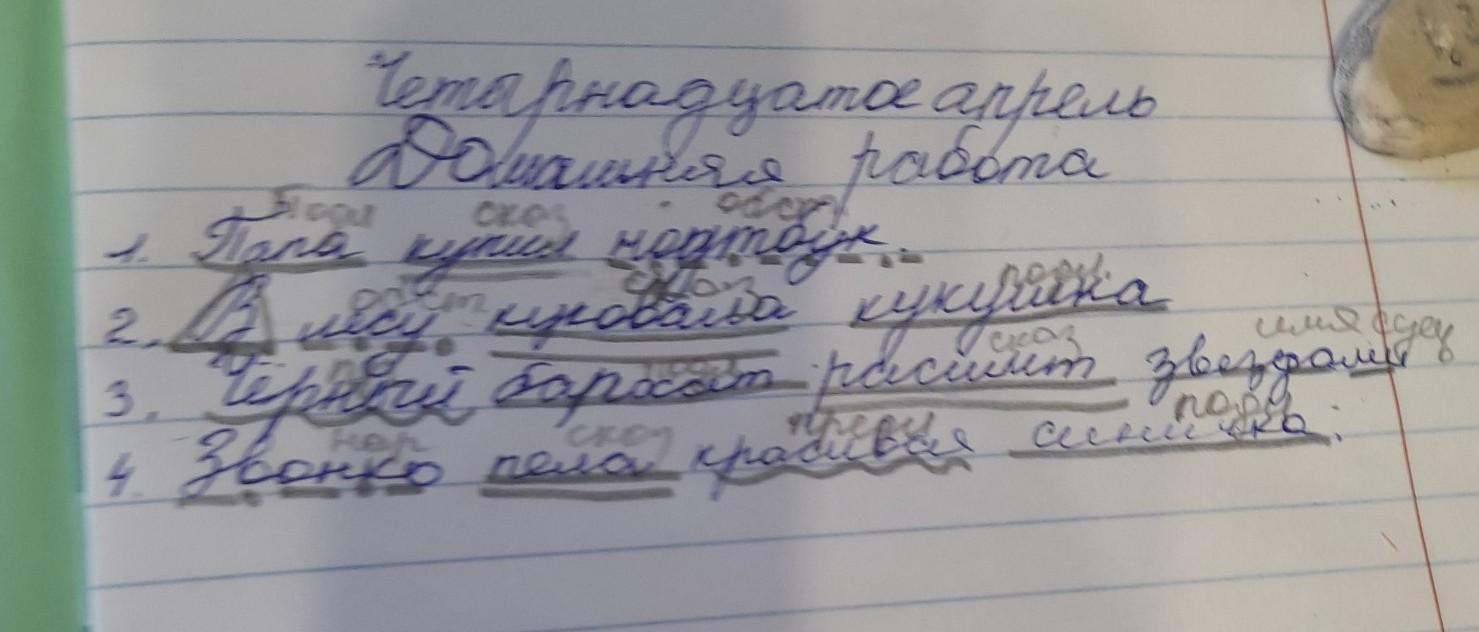 Четырнадцатое апрель
Домашняя работа
сказ обст
1. Папа купил ноотбук.
обст сказ подл.
2. В лесу куковала кукушка
сказ имя сущ
3. Чёрный расшит звездами
нар сказ прил подл
4. Звонко пела красивая синичка.